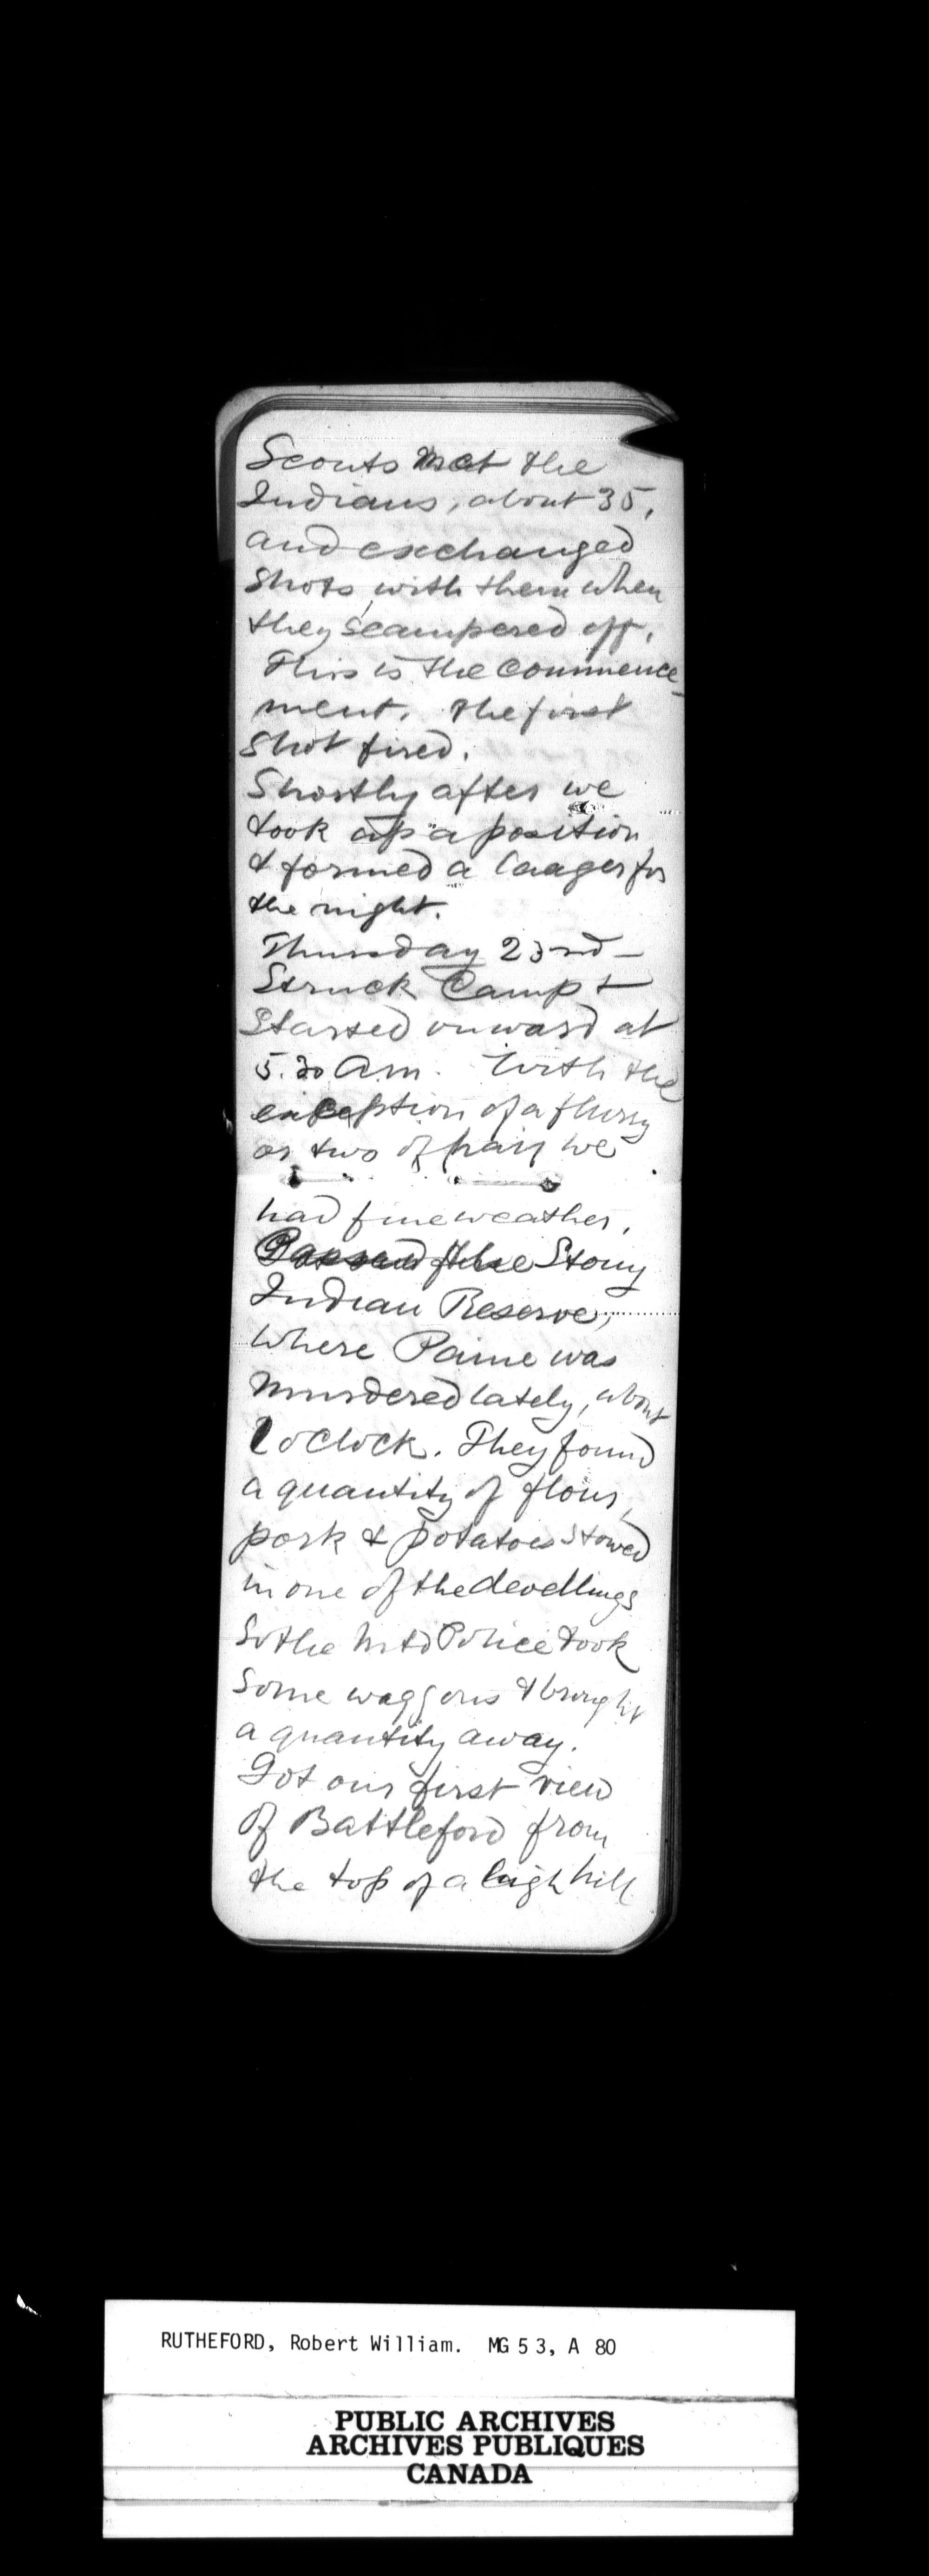 Scouts met the
Indians, about 35,
and exchanged
shots with them when
they scampered off.
This is the commence-
ment. The first
shot fired.
Shortly after we
took up a position
& formed a laager for
the night.
Thursday 23rd -
Struck Camp &
Started onward at
5.30 Am. With the
exception of a flurry
or two of hail we
had fine weather.
Passed the Stony
Indian Reserve,
where Paine was
murdered lately, about
oClock. They found
a quantity of flour,
pork & potatoes stowed
in one of the dwellings
So the Mtd Police took
Some waggons & brought
a quantity away.
Got our first view
of Battleford from
the top of a high hill
RUTHEFORD, Robert William. MG 5 3, A 80
PUBLIC ARCHIVES
ARCHIVES PUBLIQUES
CANADA